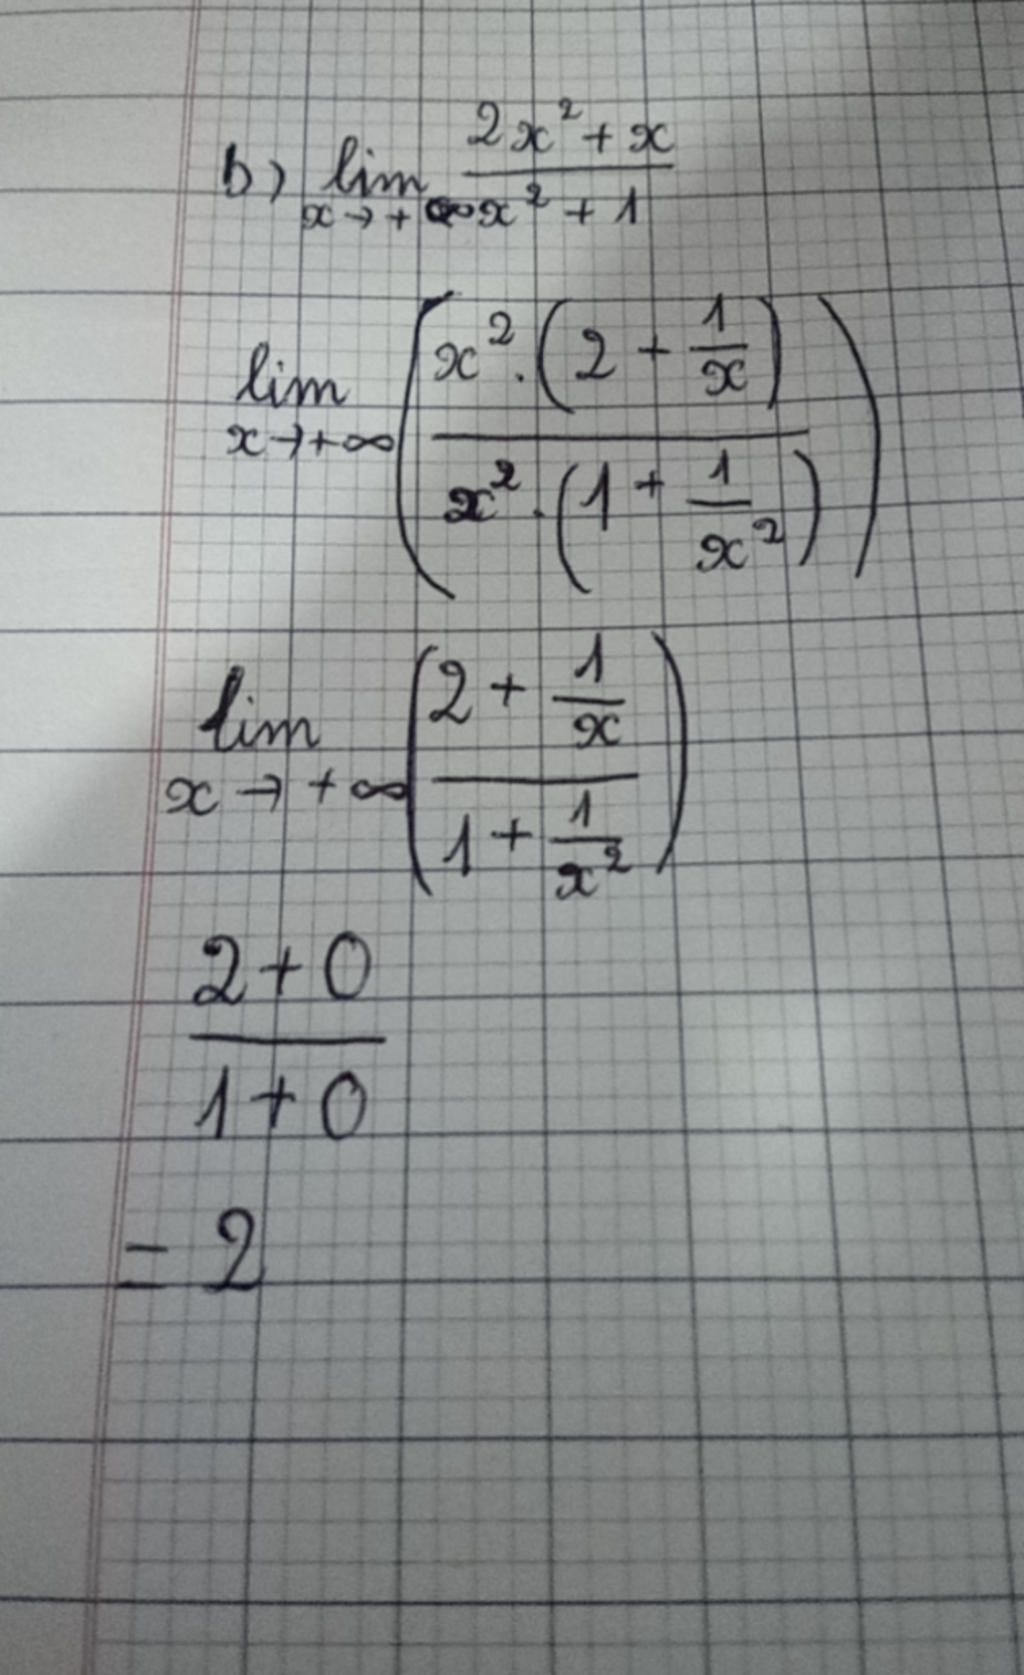 b) lim x→+∞ (2x² + x)/(x² + 1)
lim x→+∞ ( (x² . (2 + 1/x)) / (x² . (1 + 1/x²)) )
lim x→+∞ ( (2 + 1/x) / (1 + 1/x²) )
(2 + 0)/(1 + 0)
= 2